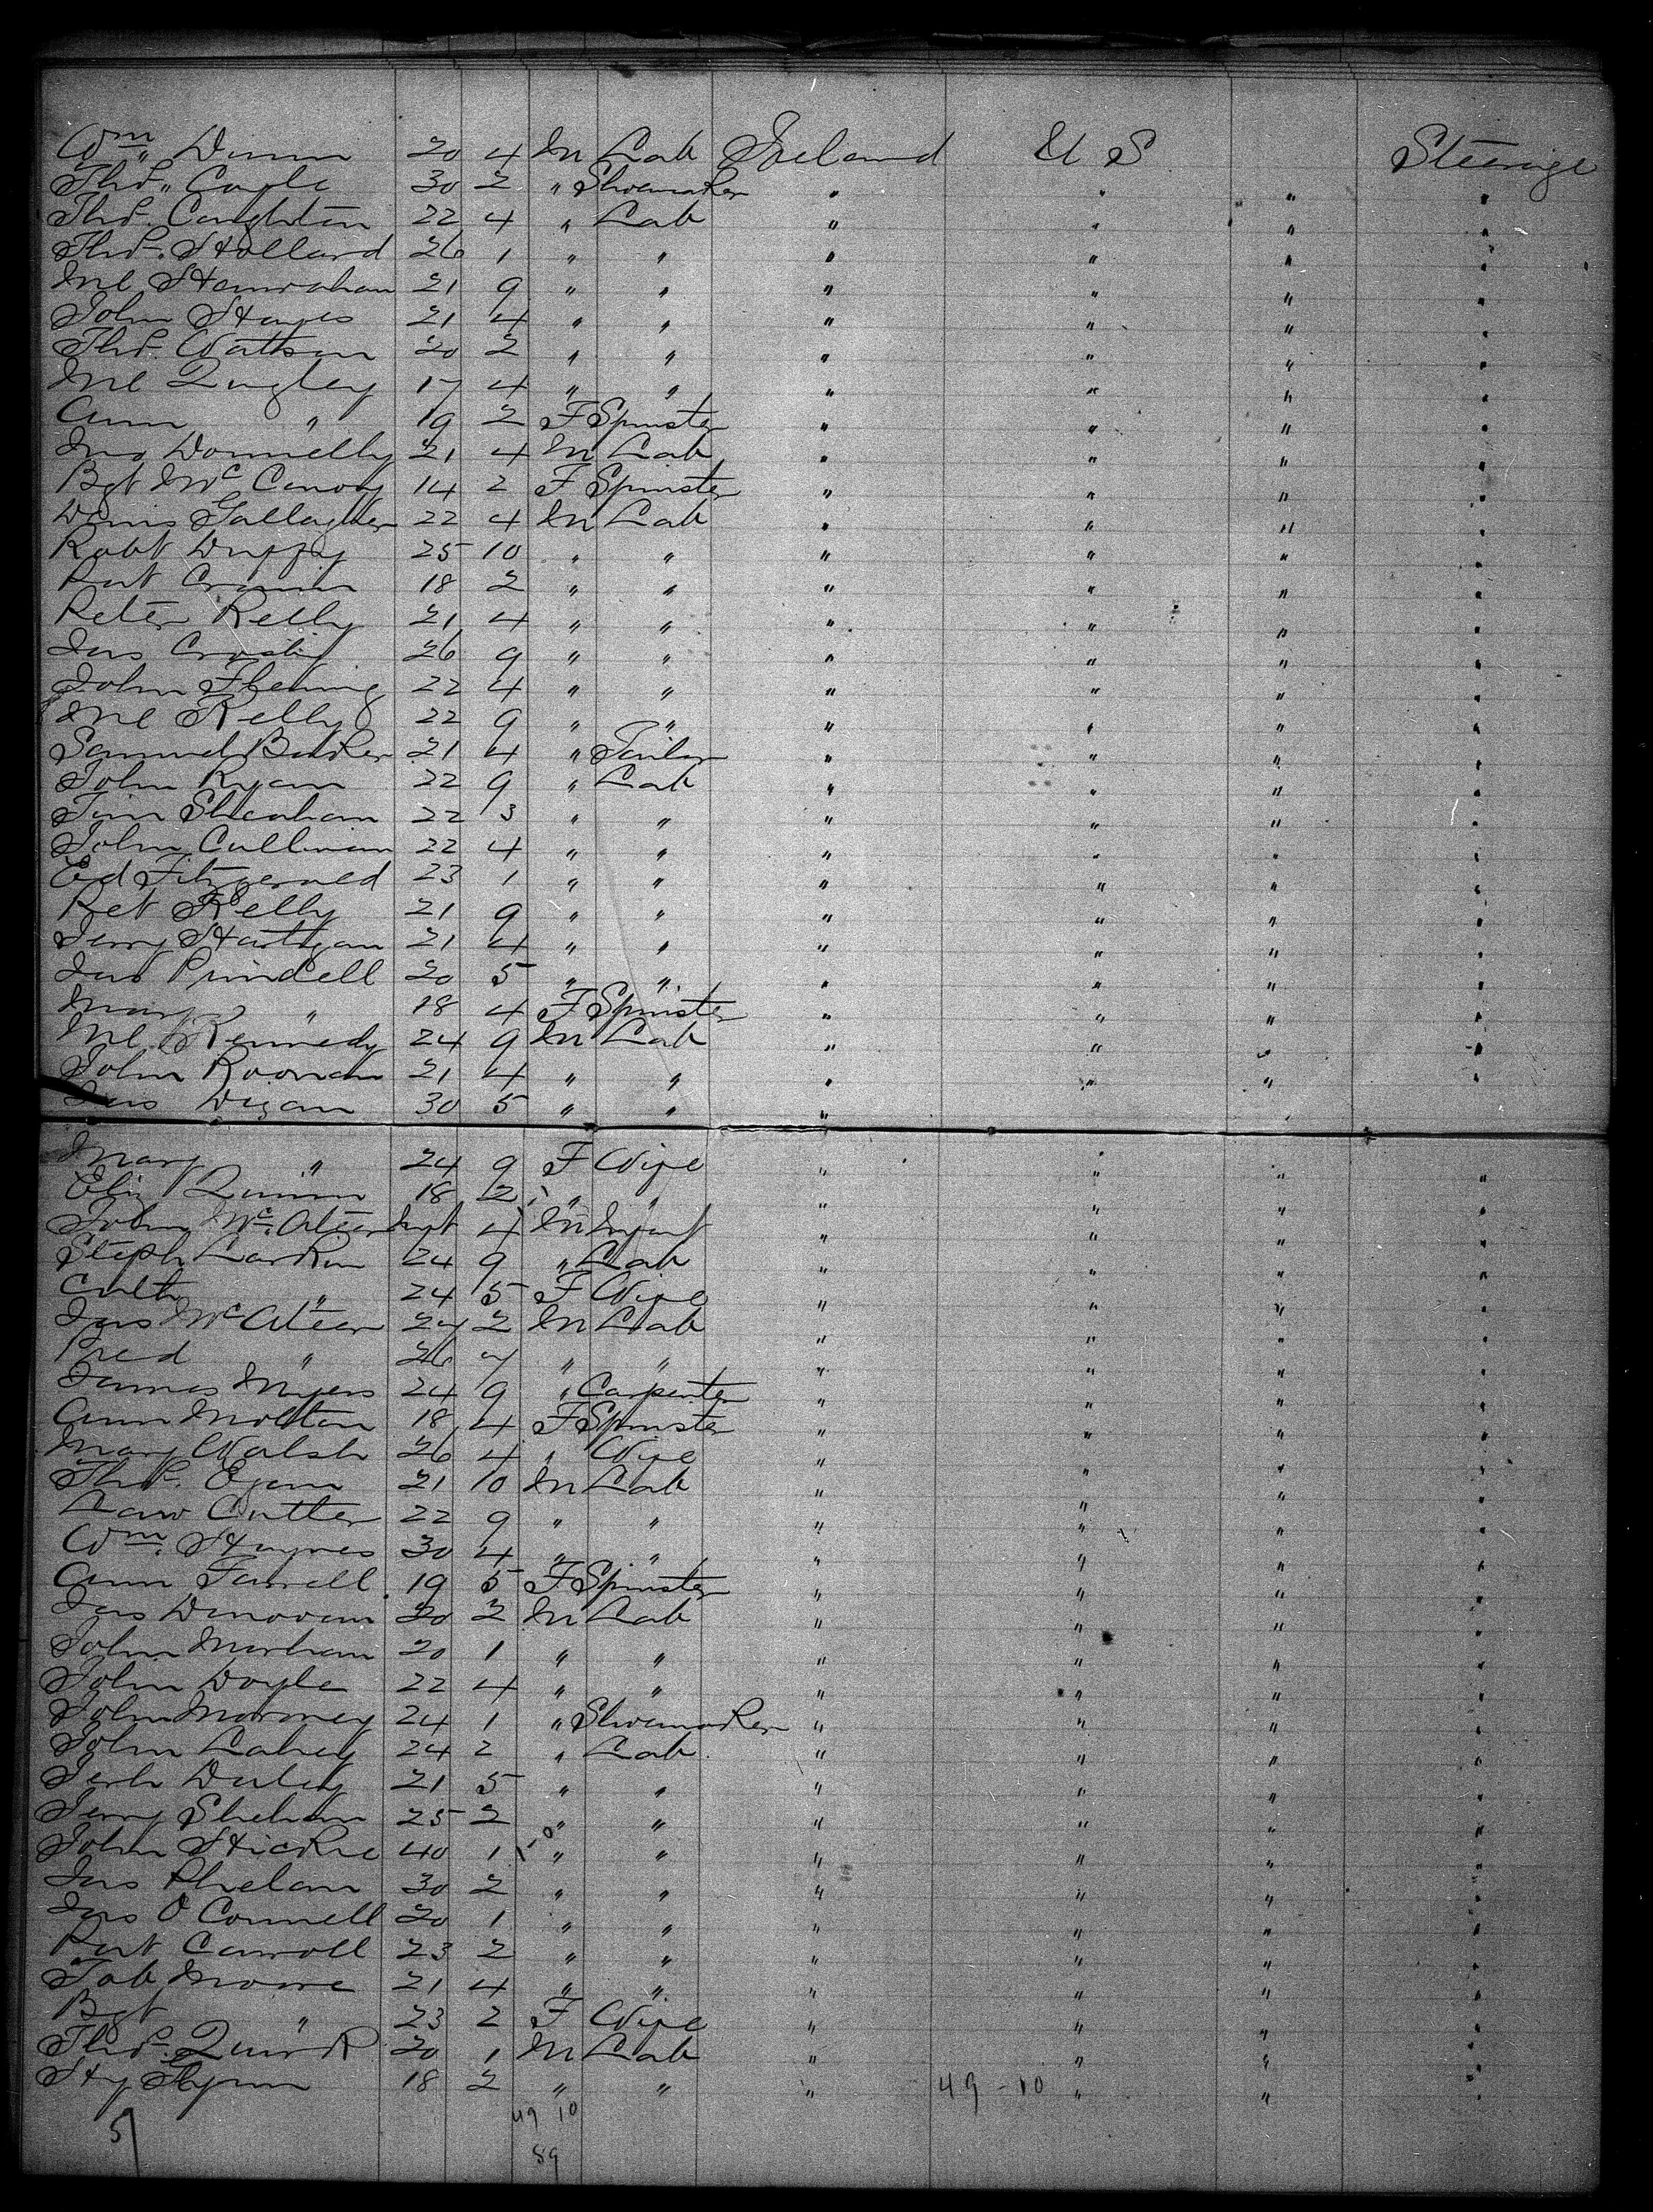 Wm Dunn 20 4 M Lab Ireland U S Steerage
Thos Coyle 30 2 " Shoemaker " " " "
Thos Caughton 22 4 " Lab " " " "
Thos Hollard 26 1 " " " " " "
Ml Hanrahan 21 9 " " " " " "
John Hayes 21 4 " " " " " "
Thos Watson 20 2 " " " " " "
Ml Quigley 17 4 " " " " " "
Ann " 19 2 F Spinster " " " "
Jno Donnelly 21 4 M Lab " " " "
Bgt Mc 14 2 F Spinster " " " "
Denis Gallagher 22 4 M Lab " " " "
Robt Duffy 25 10 " " " " " "
Pat Cronin 18 2 " " " " " "
Peter Kelly 21 4 " " " " " "
Jas Crosby 26 9 " " " " " "
John Fleming 22 4 " " " " " "
Ml Kelly 22 9 " " " " " "
Samuel Barker 21 4 " Tailor " " " "
John Ryan 22 9 " Lab " " " "
Tim Sheahan 22 3 " " " " " "
John Cullinan 22 4 " " " " " "
Ed Fitzgerald 23 1 " " " " " "
Pet Kelly 21 9 " " " " " "
Jerry Hartigan 21 4 " " " " " "
Jas Prindell 20 5 " " " " " "
Mary " 18 4 F Spinster " " " "
Ml Kennedy 24 9 M Lab " " " "
John Roonan 21 4 " " " " " "
Jas Digan 30 5 " " " " " "
Mary " 24 9 F Wife " " " "
Eliz Quinn 18 2 " " " " " "
John McAteer Inft 4 M Infant " " " "
Steph Larkin 24 9 " Lab " " " "
Cath " 24 5 F Wife " " " "
Jas McAteer 27 2 M Lab " " " "
Fred " 26 7 " " " " " "
James Myers 24 9 " Carpenter " " " "
Ann Molton 18 4 F Spinster " " " "
Mary Walsh 26 4 " Wife " " " "
Thos Egan 21 10 M Lab " " " "
Law Cutter 22 9 " " " " " "
Wm Haynes 30 4 " " " " " "
Ann Farrell 19 5 F Spinster " " " "
Jas Donovan 20 2 M Lab " " " "
John Marham 20 1 " " " " " "
John Doyle 22 4 " " " " " "
John Maroney 24 1 " Shoemaker " " " "
John Lahey 24 2 " Lab " " " "
Jerh Daley 21 5 " " " " " "
Jerry Shehan 25 2 " " " " " "
John Hickie 40 1 " " " " " "
Jas Phelan 30 2 " " " " " "
Jas O Connell 20 1 " " " " " "
Pat Carroll 23 2 " " " " " "
Tob Moore 21 4 " " " " " "
Bgt " 23 2 F Wife " " " "
Thos Quirk 20 1 M Lab " " " "
Hy Flynn 18 2 " " " 49-10 " " "
49 10
59